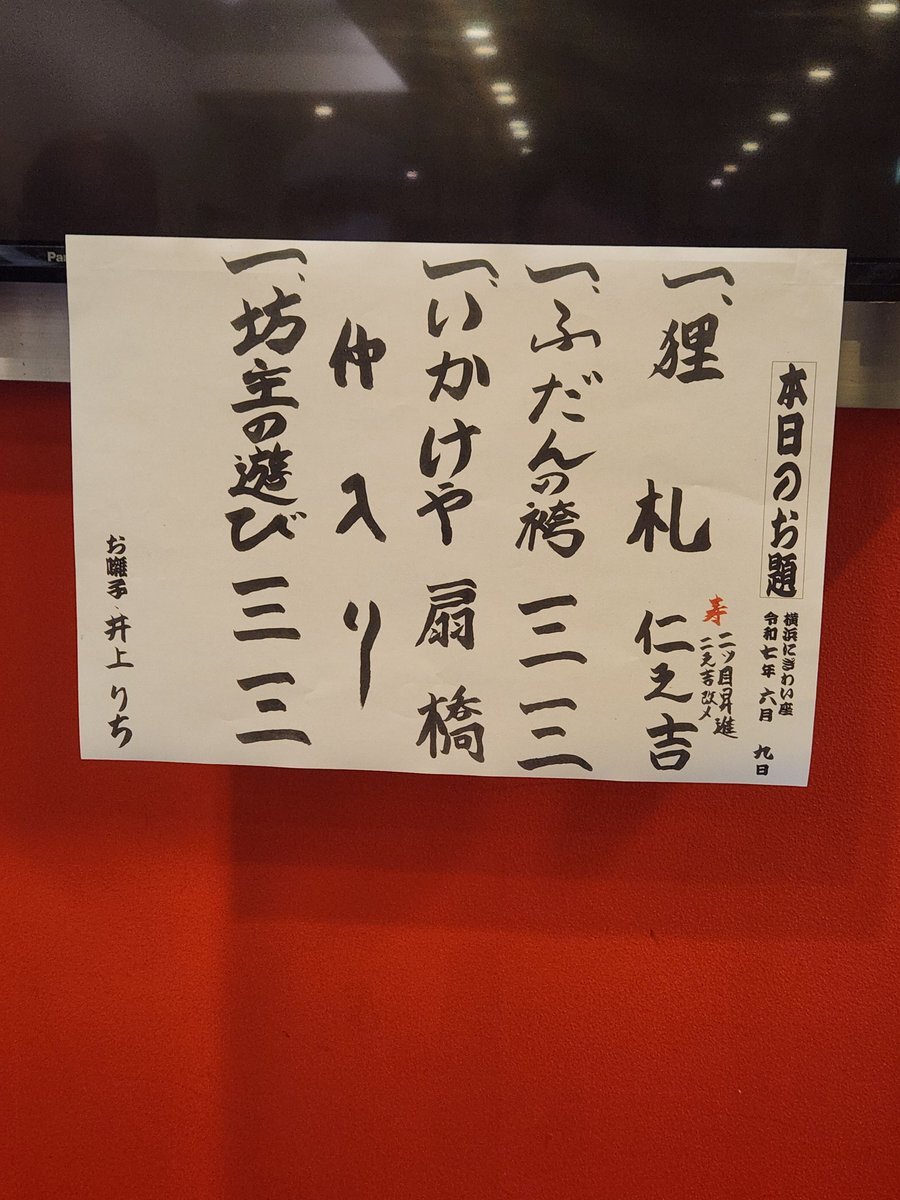 本日のお題
横浜にぎわい座
令和七年 六月 九日
寿 二ツ目昇進
二之吉改メ
一、狸札 仁之吉
一、ふだんの袴 三三
一、いかけや 扇橋
仲入り
一、坊主の遊び 三三
お囃子・井上りち